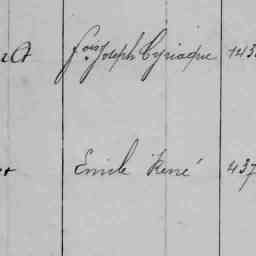 fois Joseph Cyriaque 143
Emile René 437